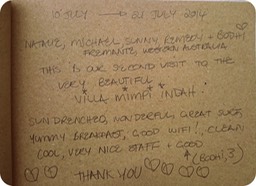 JULY → 20 JULY 2014
NATALIE, MICHAEL, SUNNY, REMEDY + BODHI ♡
FREMANTLE, WESTERN AUSTRALIA
THIS IS OUR SECOND VISIT TO THE
VERY BEAUTIFUL
VILLA MIMPI INDAH.
SUNDRENCHED, WONDERFUL, GREAT SURF,
YUMMY BREAKFAST, GOOD WIFI!, CLEAN
COOL, VERY NICE STAFF + GOOD
(BODHI, 3)
♡♡ THANK YOU ♡♡♡